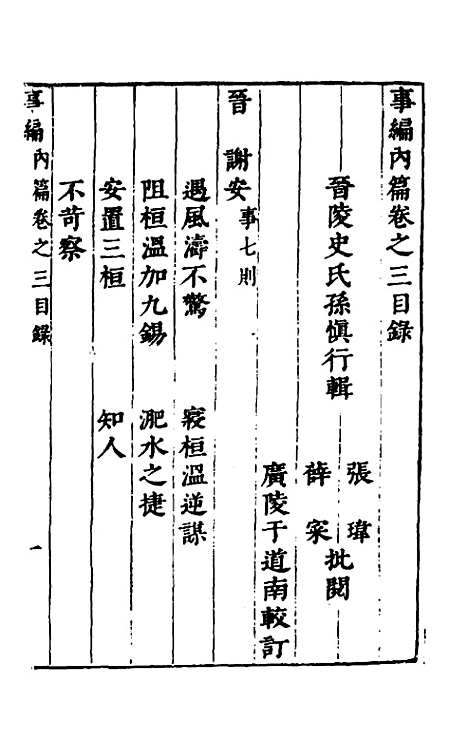 事編內篇卷之三目錄
晉陵史氏孫愼行輯
張瑋
薛寀
批閱
廣陵于道南較訂
晉
謝安事七則
遇風濤不驚
寢桓溫逆謀
阻桓溫加九錫
淝水之捷
安置三桓
知人
不苛察
事編內篇卷之三目錄
一